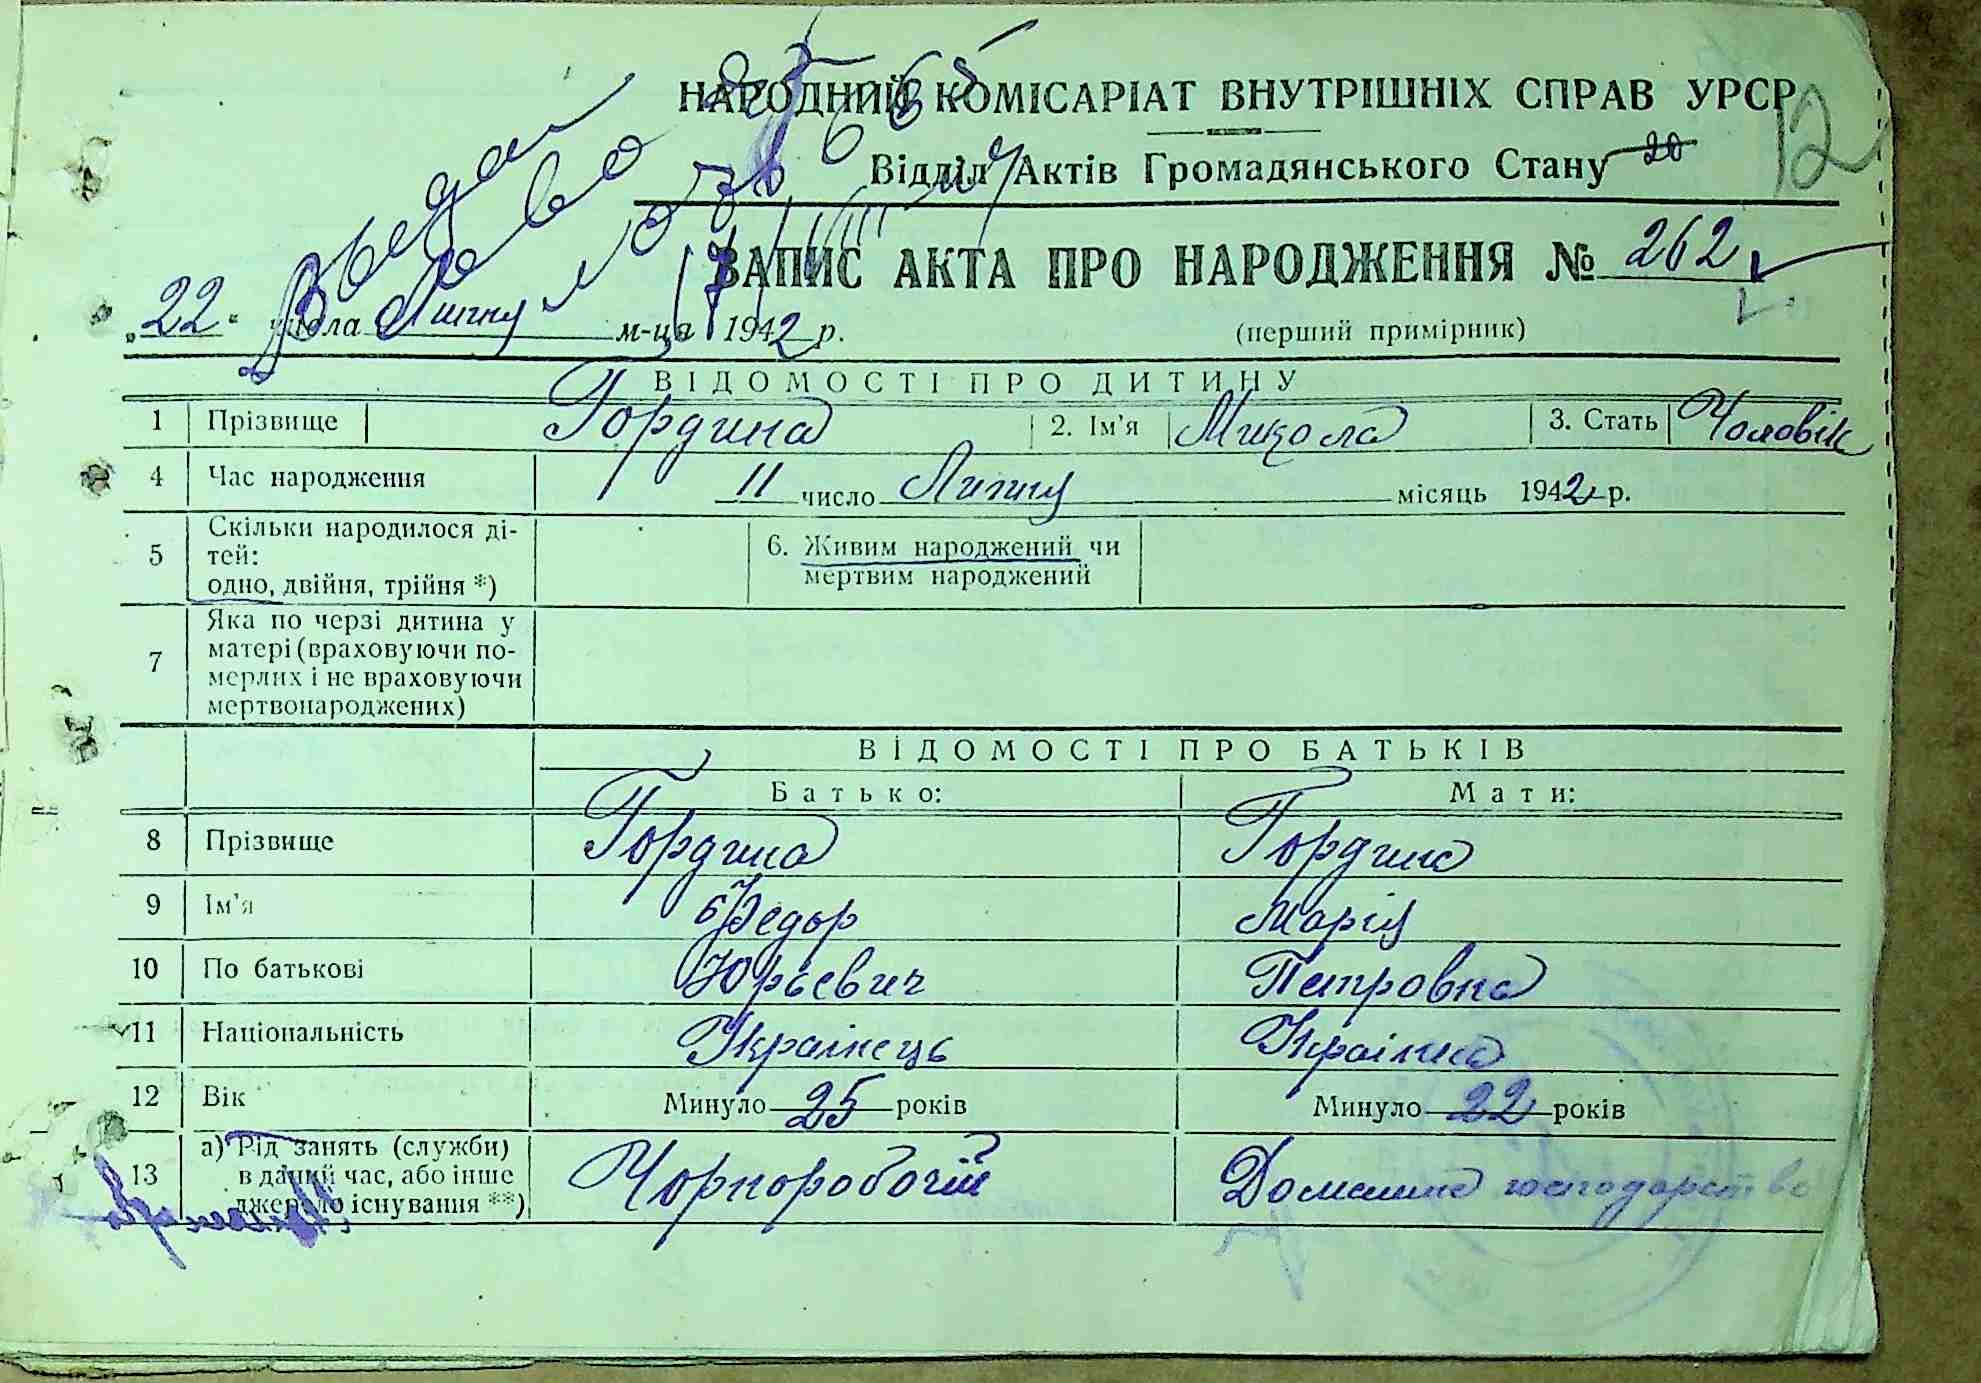 НАРОДНИЙ КОМІСАРІАТ ВНУТРІШНІХ СПРАВ УРСР
12
Відділ Актів Громадянського Стану 20
ЗАПИС АКТА ПРО НАРОДЖЕННЯ № 262
„22“ числа Липня м-ця 1942 р.
(перший примірник)
ВІДОМОСТІ ПРО ДИТИНУ
1 Прізвище Гордина 2. Ім'я Микола 3. Стать Чоловік
4 Час народження 11 число Липня місяць 1942 р.
5 Скільки народилося ді-
тей:
одно, двійня, трійня *)
6. Живим народжений чи
мертвим народжений
7 Яка по черзі дитина у
матері (враховуючи по-
мерлих і не враховуючи
мертвонароджених)
ВІДОМОСТІ ПРО БАТЬКІВ
Батько: Мати:
8 Прізвище Гордина Гордина
9 Ім'я Федор Марія
10 По батькові Юрьевич Петровна
11 Національність Українець Українка
12 Вік Минуло 25 років Минуло 22 років
13 а) Рід занять (служби)
в даний час, або інше
джерело існування **)
Чорноробочій Домашнє господарство